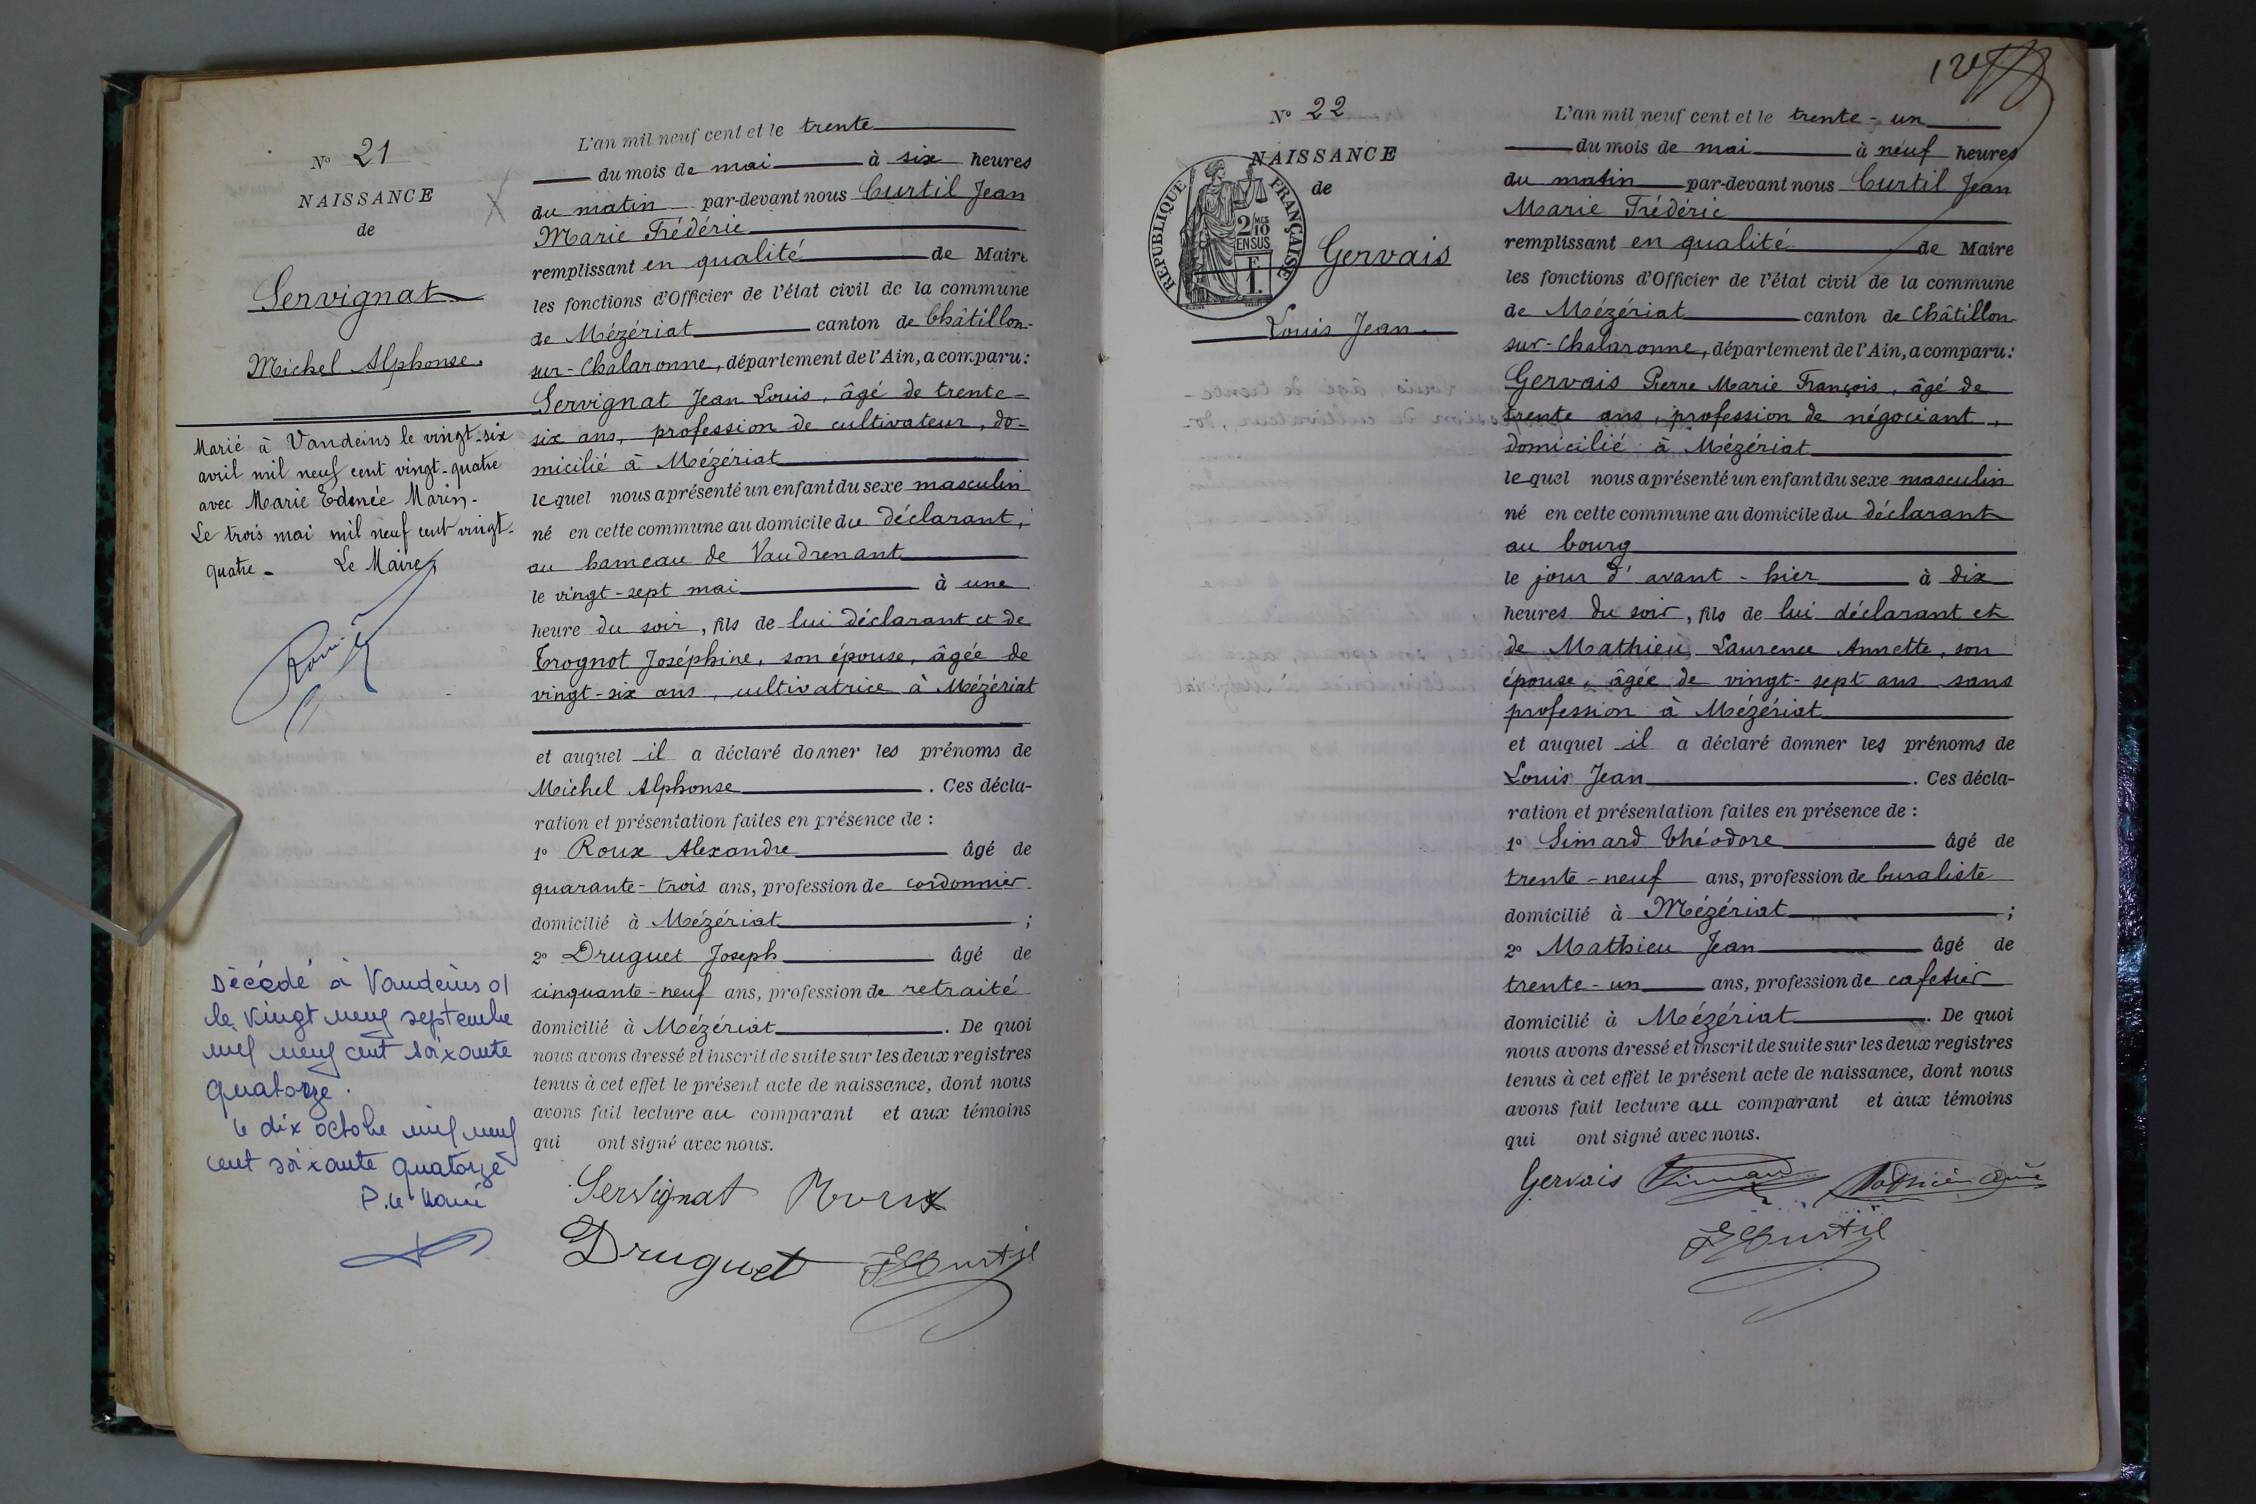 N° 21
NAISSANCE
de
Servignat
Michel Alphonse
Marié à Vandeins le vingt-six
avril mil neuf cent vingt-quatre
avec Marie Edmée Marin.
Le trois mai mil neuf cent vingt-
quatre. Le Maire,
Décédé à Vandeins 01
le vingt neuf septembre
mil neuf cent soixante
quatorze.
le dix octobre mil neuf
cent soixante quatorze
P. le Maire
L'an mil neuf cent et le trente
du mois de mai à six heures
du matin par-devant nous Curtil Jean
Marie Frédéric
remplissant en qualité de Maire
les fonctions d'Officier de l'état civil de la commune
de Mézériat canton de Châtillon-
sur-Chalaronne, département de l'Ain, a comparu:
Servignat Jean Louis, âgé de trente-
six ans, profession de cultivateur, do-
micilié à Mézériat
lequel nous a présenté un enfant du sexe masculin
né en cette commune au domicile du déclarant,
au hameau de Vaudrenant
le vingt-sept mai à une
heure du soir, fils de lui déclarant et de
Trognot Joséphine, son épouse, âgée de
vingt-six ans, cultivatrice à Mézériat
et auquel il a déclaré donner les prénoms de
Michel Alphonse. Ces décla-
ration et présentation faites en présence de :
1° Roux Alexandre âgé de
quarante-trois ans, profession de cordonnier
domicilié à Mézériat ;
2° Druguet Joseph âgé de
cinquante-neuf ans, profession de retraité
domicilié à Mézériat. De quoi
nous avons dressé et inscrit de suite sur les deux registres
tenus à cet effet le présent acte de naissance, dont nous
avons fait lecture au comparant et aux témoins
qui ont signé avec nous.
Servignat Roux
Druguet F Curtil
N° 22
NAISSANCE
de
RÉPUBLIQUE FRANÇAISE
2 MES 10
EN SUS
F
1.
Gervais
Louis Jean
L'an mil neuf cent et le trente-un
du mois de mai à neuf heures
du matin par-devant nous Curtil Jean
Marie Frédéric
remplissant en qualité de Maire
les fonctions d'Officier de l'état civil de la commune
de Mézériat canton de Châtillon
sur-Chalaronne, département de l'Ain, a comparu:
Gervais Pierre Marie François, âgé de
trente ans, profession de négociant,
domicilié à Mézériat
lequel nous a présenté un enfant du sexe masculin
né en cette commune au domicile du déclarant
au bourg
le jour d'avant-hier à dix
heures du soir, fils de lui déclarant et
de Mathieu Laurence Annette, son
épouse, âgée de vingt-sept ans sans
profession à Mézériat
et auquel il a déclaré donner les prénoms de
Louis Jean. Ces décla-
ration et présentation faites en présence de :
1° Simard Théodore âgé de
trente-neuf ans, profession de buraliste
domicilié à Mézériat ;
2° Mathieu Jean âgé de
trente-un ans, profession de cafetier
domicilié à Mézériat. De quoi
nous avons dressé et inscrit de suite sur les deux registres
tenus à cet effet le présent acte de naissance, dont nous
avons fait lecture au comparant et aux témoins
qui ont signé avec nous.
Gervais Simard
F Curtil